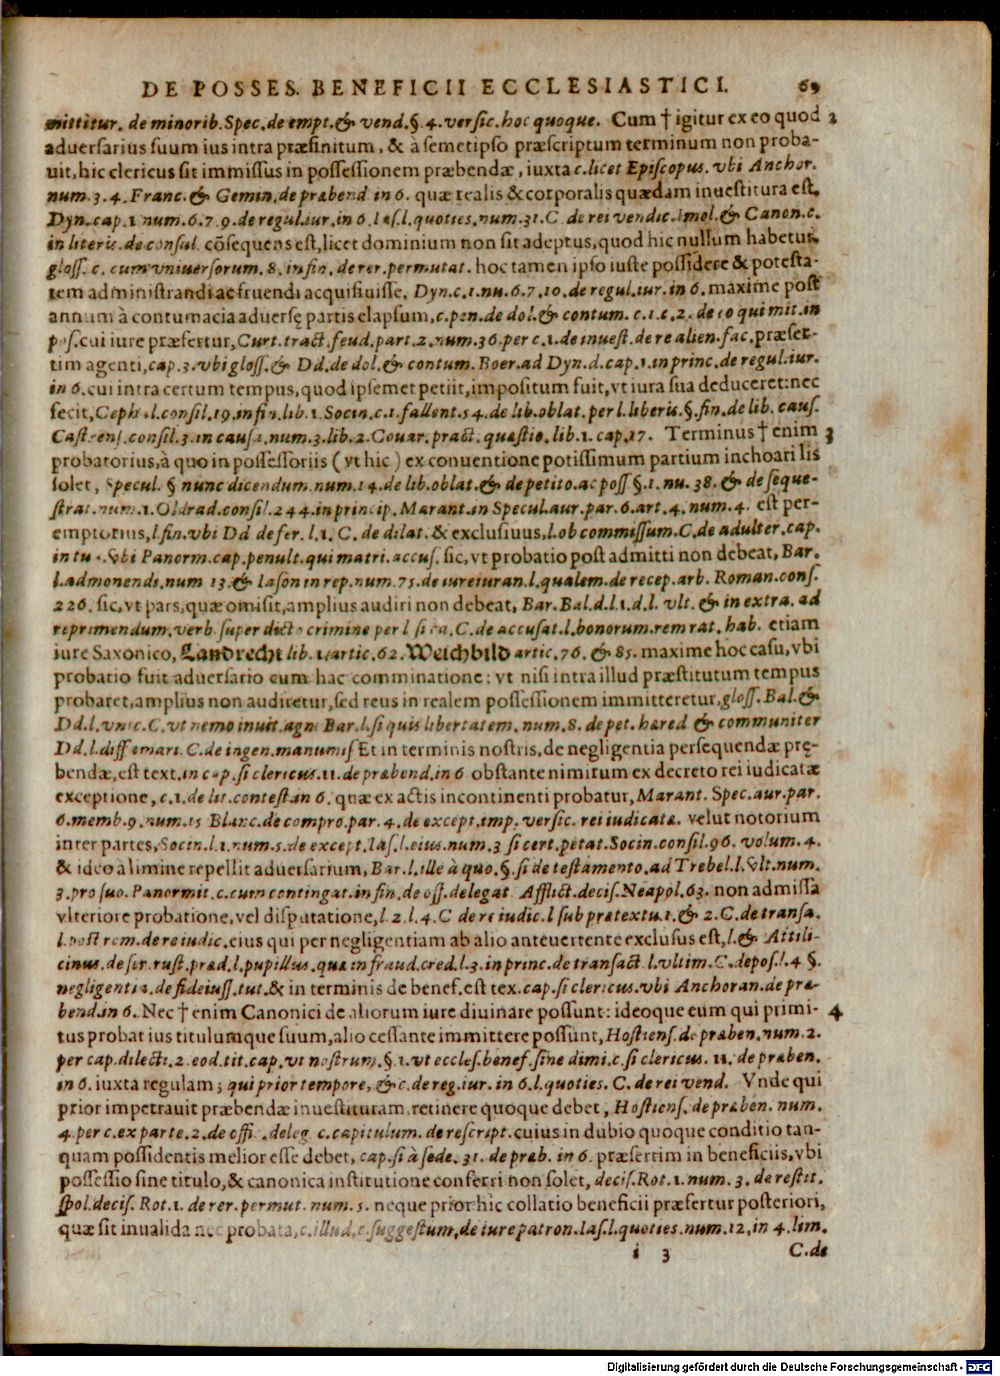 DE POSSES. BENEFICII ECCLESIASTICI. 69
mittitur. de minorib. Spec. de empt. & vend. §. 4. versic. hoc quoque. Cum † igitur ex eo quod 2
aduersarius suum ius intra præfinitum, & à semetipso præscriptum terminum non proba-
uit, hic clericus sit immissus in possessionem præbendæ, iuxta c. licet Episcopus. vbi Anchor.
num. 3. 4. Franc. & Gemin. de præbend in 6. quæ realis & corporalis quædam inuestitura est,
Dyn. cap. 1. num. 6. 7. 9. de regul. iur. in 6. Ias. l. quoties, num. 31. C. de rei vendic. Imol. & Canon. c.
in literis. de consul. cōsequens est, licet dominium non sit adeptus, quod hic nullum habetur,
gloss. c. cum vniuersorum. 8. in fin. de rer. permutat. hoc tamen ipso iuste possidere & potesta-
tem administrandi ac fruendi acquisiuisse, Dyn. c. 1. nu. 6. 7. 10. de regul. iur. in 6. maxime post
annum à contumacia aduersę partis elapsum, c. pen. de dol. & contum. c. 1. c. 2. de eo qui mit. in
pos. cui iure præfertur, Curt. tract. feud. part. 2. num. 36. per c. 1. de inuest. de re alien. fac. præser-
tim agenti, cap. 3. vbi gloss. & Dd. de dol. & contum. Boer. ad Dyn. d. cap. 1. in princ. de regul. iur.
in 6. cui intra certum tempus, quod ipsemet petiit, impositum fuit, vt iura sua deduceret: nec
fecit, Cephal. consil. 19. in fin. lib. 1. Socin. c. 1. fallent. 54. de lib. oblat. per l. liberis. §. fin. de lib. caus.
Castrens. consil. 3. in causa, num. 3. lib. 2. Couar. pract. quæstio. lib. 1. cap. 17. Terminus † enim 3
probatorius, à quo in possessoriis ( vt hic ) ex conuentione potissimum partium inchoari lis
solet, Specul. § nunc dicendum. num. 14. de lib. oblat. & de petito. ac poss §. 1. nu. 38. & de seque-
strat. num. 1. Oldrad. consil. 244. in princip. Marant. in Specul. aur. par. 6. art. 4. num. 4. est per-
emptorius, l. fin. vbi Dd de fer. l. 1. C. de dilat. & exclusiuus, l. ob commissum. C. de adulter. cap.
in tu . vbi Panorm. cap. penult. qui matri. accus. sic, vt probatio post admitti non debeat, Bar.
l. admonendi, num 13. & Iason in rep. num. 75. de iureiuran. l. qualem. de recep. arb. Roman. cons.
226. sic, vt pars, quæ omisit, amplius audiri non debeat, Bar. Bal. d. l. 1. d. l. vlt. & in extra. ad
reprimendum. verb super dicto crimine per l si ea. C. de accusat. l. bonorum. rem rat. hab. etiam
iure Saxonico, Landrecht lib. 1. artic. 62. Weichbild artic. 76. & 85. maxime hoc casu, vbi
probatio fuit aduersario cum hac comminatione: vt nisi intra illud præstitutum tempus
probaret, amplius non audiretur, sed reus in realem possessionem immitteretur, gloss. Bal. &
Dd. l. vnic. C. vt nemo inuit. agn: Bar. l. si quis libertatem. num. 8. de pet. hæred & communiter
Dd. l. diffamari. C. de ingen. manumis Et in terminis nostris, de negligentia persequendæ prę-
bendæ, est text. in cap. si clericus. 11. de præbend. in 6 obstante nimirum ex decreto rei iudicatæ
exceptione, c. 1. de lit. contest. in 6. quæ ex actis incontinenti probatur, Marant. Spec. aur. par.
6. memb. 9. num. 15 Blanc. de compro. par. 4. de except. imp. versic. rei iudicatæ. velut notorium
inter partes, Socin. l. 1. num. 5. de except. Ias. l. eius. num. 3 si cert. petat. Socin. consil. 96. volum. 4.
& ideo a limine repellit aduersarium, Bar. l. ille à quo. §. si de testamento. ad Trebel. l. vlt. num.
3. pro suo. Panormit. c. cum contingat. in fin. de off. delegat Afflict. decis. Neapol. 63. non admissa
vlteriore probatione, vel disputatione, l. 2. l. 4. C de re iudic. l sub prætextu. 1. & 2. C. de transa.
l. post rem. de re iudic. eius qui per negligentiam ab alio anteuertente exclusus est, l. & Attili-
cinus. de ser. rust. præd. l. pupillus. quæ in fraud. cred. l. 3. in princ. de transact. l. vltim. C. depos. l. 4 §.
negligentia. de fideiuss. tut. & in terminis de benef. est tex. cap. si clericus. vbi Anchoran. de præ-
bend. in 6. Nec † enim Canonici de aliorum iure diuinare possunt: ideoque eum qui primi- 4
tus probat ius titulumque suum, alio cessante immittere possunt, Hostiens. de præben. num. 2.
per cap. dilecti. 2. eod. tit. cap. vt nostrum. §. 1. vt eccles. benef. sine dimi. c. si clericus. 11. de præben.
in 6. iuxta regulam; qui prior tempore, & c. de reg. iur. in 6. l. quoties. C. de rei vend. Vnde qui
prior impetrauit præbendæ inuestituram, retinere quoque debet, Hostiens. de præben. num.
4. per c. ex parte. 2. de offi . deleg c. capitulum. de rescript. cuius in dubio quoque conditio tan-
quam possidentis melior esse debet, cap. si à sede. 31. de præb. in 6. præsertim in beneficiis, vbi
possessio sine titulo, & canonica institutione conferri non solet, decis. Rot. 1. num. 3. de restit.
spol. decis. Rot. 1. de rer. permut. num. 5. neque prior hic collatio beneficii præfertur posteriori,
quæ sit inualida nec probata, c. illud, c. suggestum, de iure patron. Ias. l. quoties. num. 12, in 4. lim.
i 3 C. de
Digitalisierung gefördert durch die Deutsche Forschungsgemeinschaft - DFG